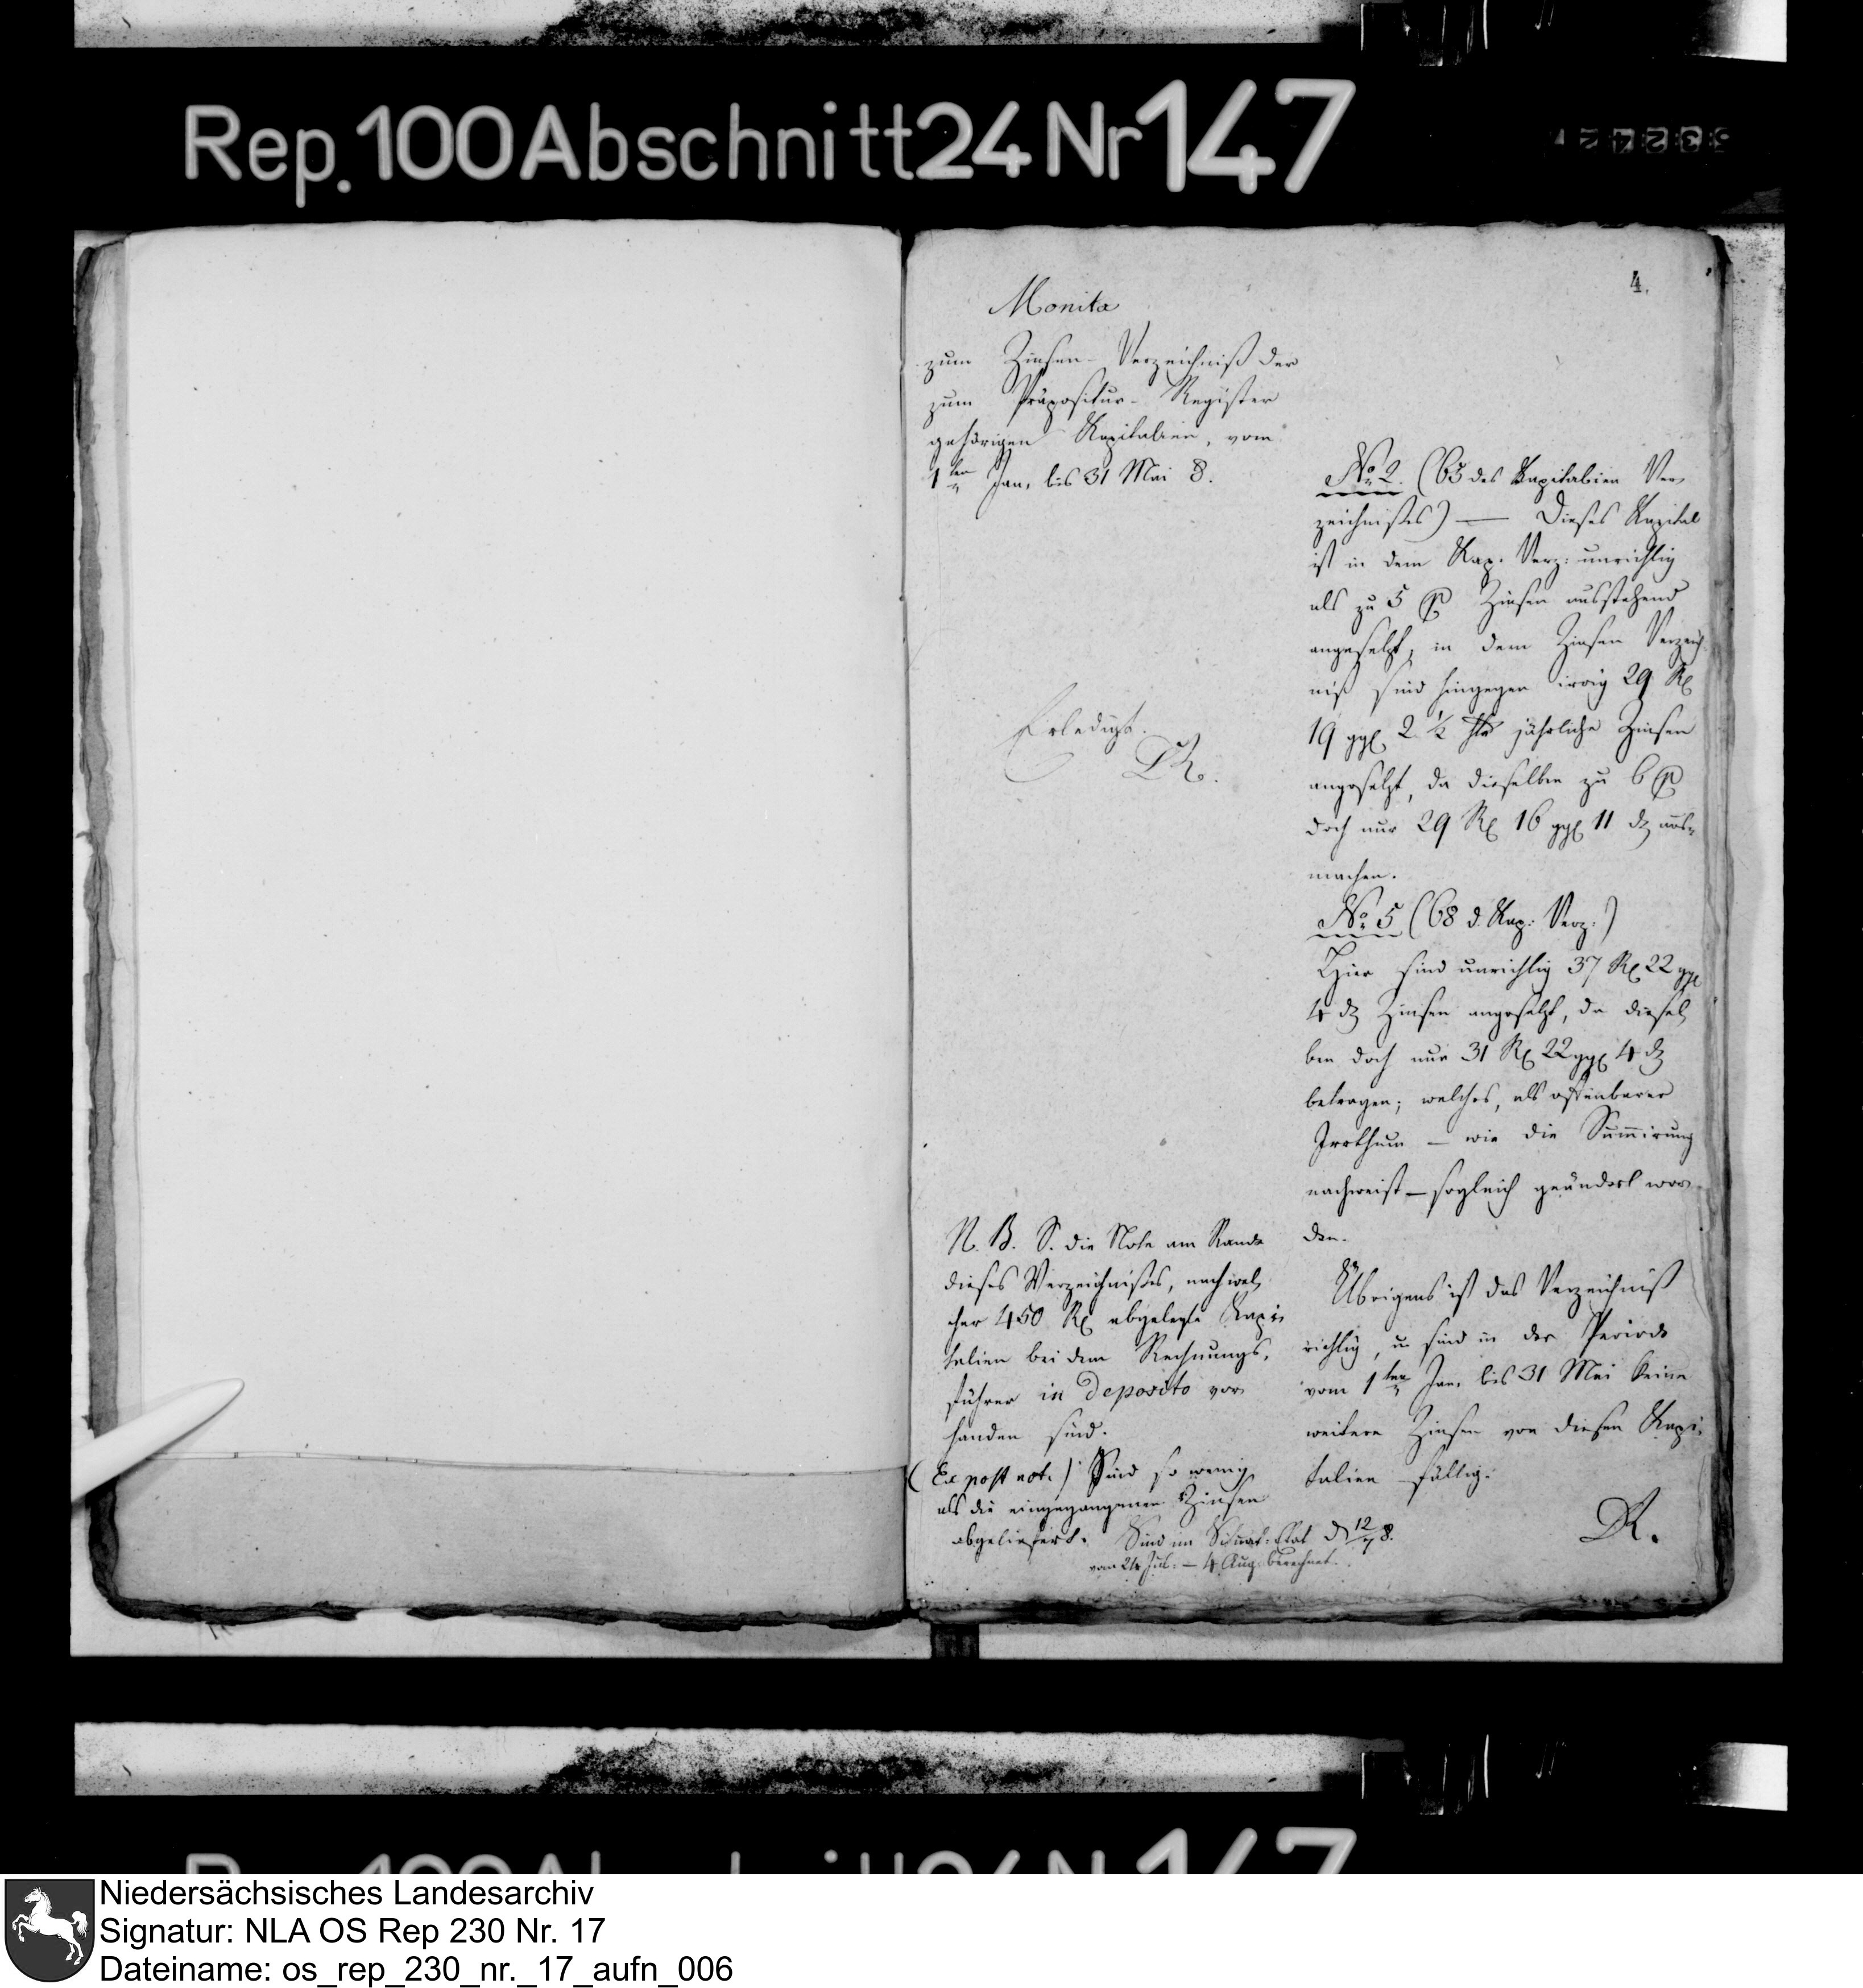 Rep. 100 Abschnitt 24 Nr 147
4.
Monita
zum Zinsen-Verzeichniß der
zum Präpositur-Register
gehörigen Kapitalien, vom
1ten Jan. bis 31 Mai 8.
Erledigt.
DR.
N. B. S. die Note am Rande
dieses Verzeichnißes, nach wel,
cher 450 R abgelegte Kapi,
talien bei dem Rechnungs,
führer in deposito vor
handen sind.
(Ex post not.) Sind so wenig
als die eingegangenen Zinsen
abgeliefert. Sind im Situat: Etat d 12/7 8.
vom 24 Jul. — 4 Aug. berechnet.
No. 2. (65 des Kapitalien Ver,
zeichnißes) — Dieses Kapital
ist in dem Kap. Verz: unrichtig
als zu 5 p Zinsen ausstehend
angesetzt, in dem Zinsen Verzeich
niß sind hingegen irrig 29 R
19 ggl 2 ½ jährliche Zinsen
angesetzt, da dieselben zu 6 p
doch nur 29 R 16 ggl 11 d aus,
machen.
No. 5 (68 d. Kap: Verz:)
Hier sind unrichtig 37 R 22 ggl
4 d Zinsen angesetzt, da diesel,
ben doch nur 31 R 22 ggl 4 d
betragen; welches, als offenbarer
Irrthum — wie die Summirung
nachweist — sogleich geändert wor
den.
Übrigens ist das Verzeichniß
richtig, u. sind in der Periode
vom 1ten Jan. bis 31 Mai keine
weitere Zinsen von diesen Kapi,
talien fällig.
DR.
Rep. 100 Abschnitt 24 Nr 147
Niedersächsisches Landesarchiv
Signatur: NLA OS Rep 230 Nr. 17
Dateiname: os_rep_230_nr._17_aufn_006